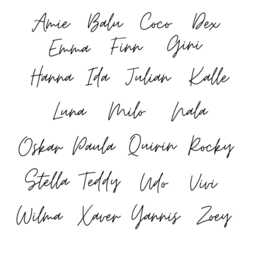 Amie Balu Coco Dex
Emma Finn Gini
Hanna Ida Julian Kalle
Luna Milo Nala
Oskar Paula Quirin Rocky
Stella Teddy Udo Vivi
Wilma Xaver Yannis Zoey